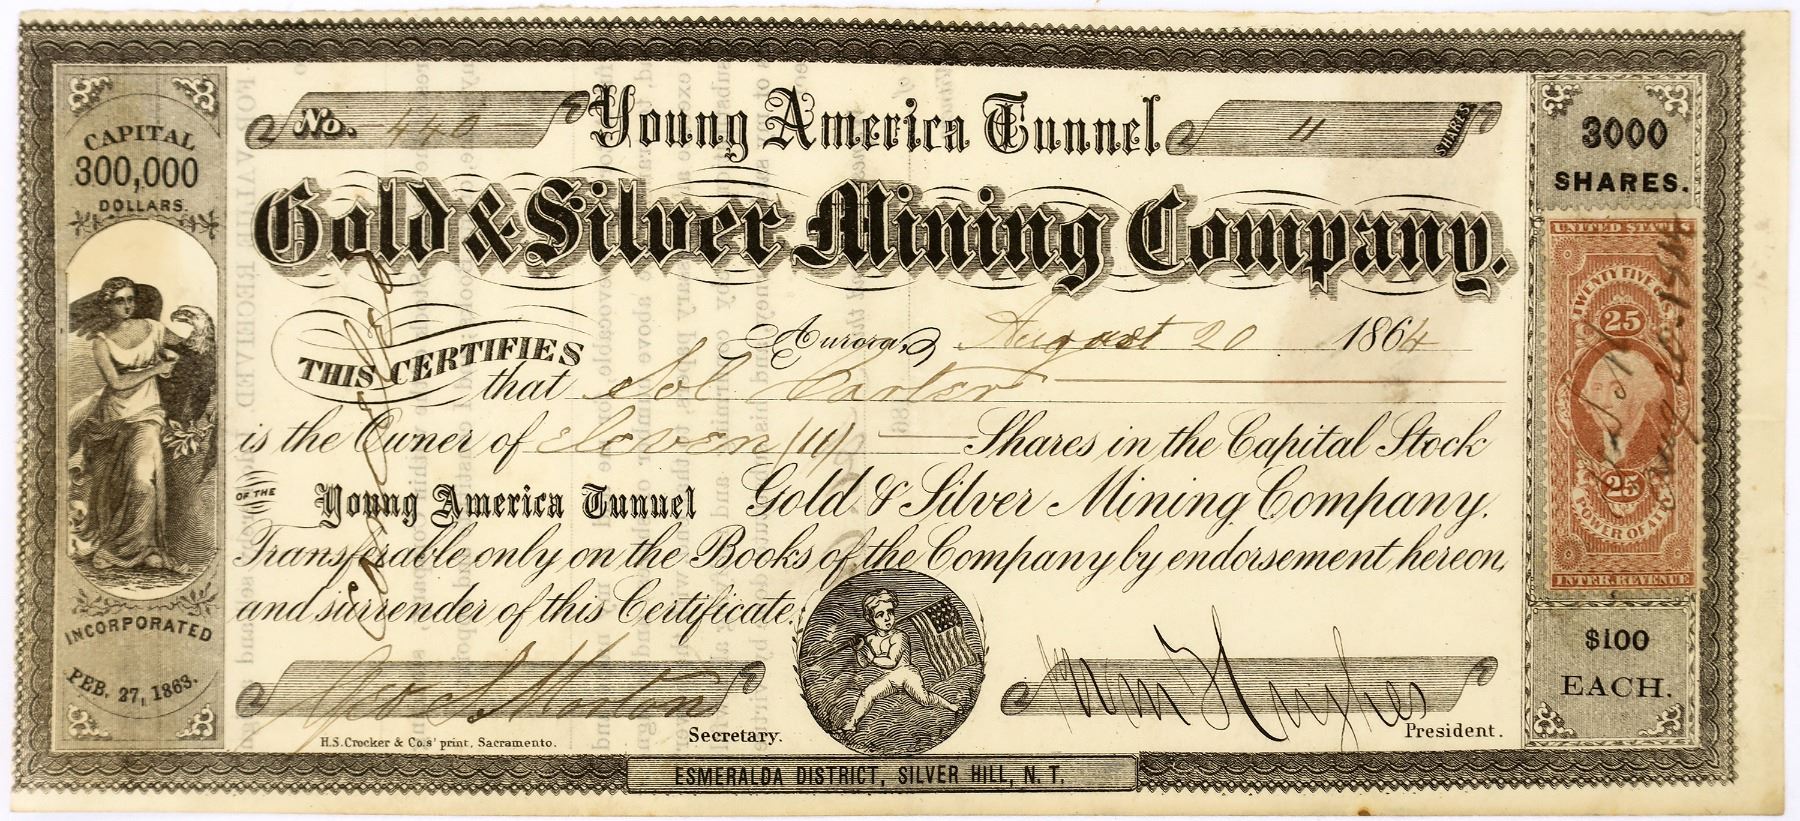 CAPITAL
300,000
DOLLARS.
INCORPORATED
FEB. 27, 1863.
No. 440
Young America Tunnel
11 SHARES
Gold & Silver Mining Company.
Aurora, August 20 1864
THIS CERTIFIES
that Sol Carter
is the Owner of eleven (11) Shares in the Capital Stock
OF THE Young America Tunnel Gold & Silver Mining Company.
Transferable only on the Books of the Company by endorsement hereon,
and surrender of this Certificate.
Geo S Morton
Secretary.
Wm Hughes
President.
H.S. Crocker & Co.s' print, Sacramento.
ESMERALDA DISTRICT, SILVER HILL, N. T.
3000
SHARES.
UNITED STATES
TWENTY FIVE
25
25
POWER OF ATT
INTER. REVENUE
Aug 20 1864
$100
EACH.
Cancelled